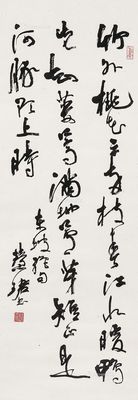 竹外桃花三两枝春江水暖鸭
先知蒌蒿满地芦芽短正是
河豚欲上时
东坡诗句